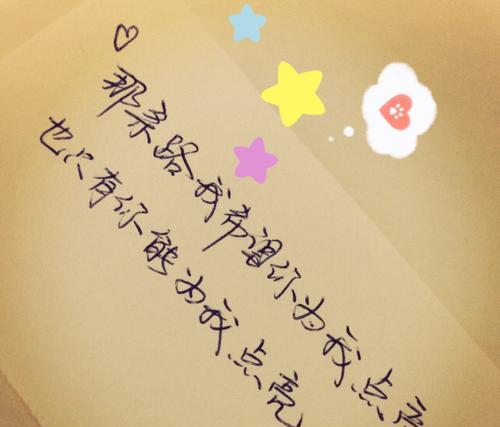 那条路我希望你为我点亮
也只有你能为我点亮